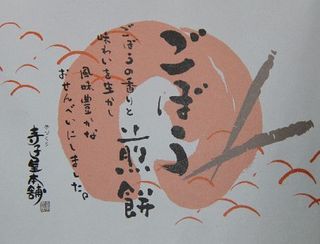 ごぼう
煎餅
ごぼうの香りと
味わいを生かし
風味豊かな
おせんべいにしました。
寺子屋本舗